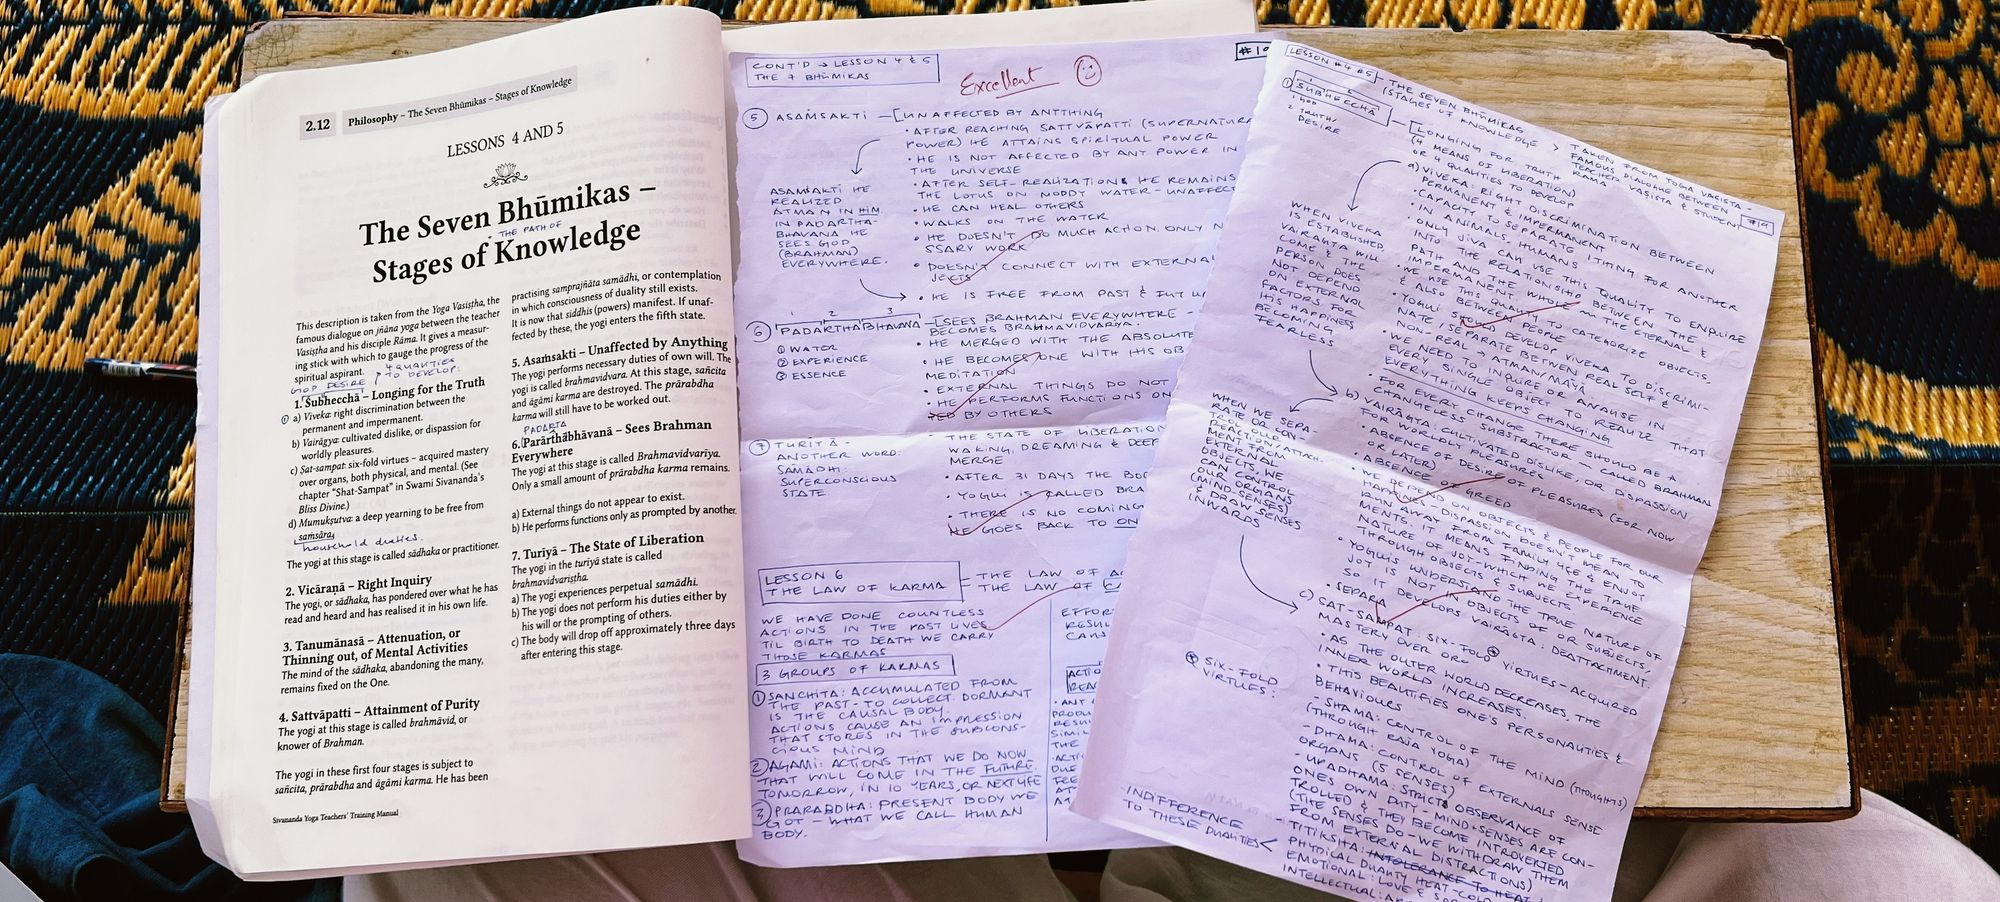 2.12 Philosophy – The Seven Bhūmikas – Stages of Knowledge
LESSONS 4 AND 5
The Seven Bhūmikas –
• THE PATH OF
Stages of Knowledge
This description is taken from the Yoga Vasiṣtha, the
famous dialogue on jñāna yoga between the teacher
Vasiṣtha and his disciple Rāma. It gives a measur-
ing stick with which to gauge the progress of the
spiritual aspirant.
4 QUALITIES
TO DEVELOP:
GOD DESIRE
1. Śubhecchā – Longing for the Truth
a) Viveka: right discrimination between the
permanent and impermanent.
b) Vairāgya: cultivated dislike, or dispassion for
worldly pleasures.
c) Sat-sampat: six-fold virtues – acquired mastery
over organs, both physical, and mental. (See
chapter "Shat-Sampat" in Swami Sivananda's
Bliss Divine.)
d) Mumukṣutva: a deep yearning to be free from
saṁsāra.
household duties.
The yogi at this stage is called sādhaka or practitioner.
2. Vicāraṇā – Right Inquiry
The yogi, or sādhaka, has pondered over what he has
read and heard and has realised it in his own life.
3. Tanumānasā – Attenuation, or
Thinning out, of Mental Activities
The mind of the sādhaka, abandoning the many,
remains fixed on the One.
4. Sattvāpatti – Attainment of Purity
The yogi at this stage is called brahmāvid, or
knower of Brahman.
The yogi in these first four stages is subject to
sañcita, prārabdha and āgāmi karma. He has been
Sivananda Yoga Teachers' Training Manual
practising samprajñāta samādhi, or contemplation
in which consciousness of duality still exists.
It is now that siddhis (powers) manifest. If unaf-
fected by these, the yogi enters the fifth state.
5. Asaṁsakti – Unaffected by Anything
The yogi performs necessary duties of own will. The
yogi is called brahmavidvara. At this stage, sañcita
and āgāmi karma are destroyed. The prārabdha
karma will still have to be worked out.
PADARTA
6. Parārthābhāvanā – Sees Brahman
Everywhere
The yogi at this stage is called Brahmavidvariya.
Only a small amount of prārabdha karma remains.
a) External things do not appear to exist.
b) He performs functions only as prompted by another.
7. Turiyā – The State of Liberation
The yogi in the turiyā state is called
brahmavidvariṣtha.
a) The yogi experiences perpetual samādhi.
b) The yogi does not perform his duties either by
his will or the prompting of others.
c) The body will drop off approximately three days
after entering this stage.
CONT'D → LESSON 4 & 5
THE 7 BHŪMIKAS
Excellent
5 ASAṀSAKTI – UNAFFECTED BY ANYTHING
• AFTER REACHING SATTVĀPATTI (SUPERNATURA
POWER) HE ATTAINS SPIRITUAL POWER
• HE IS NOT AFFECTED BY ANY POWER IN
THE UNIVERSE
• AFTER SELF-REALIZATION HE REMAINS
THE LOTUS ON MUDDY WATER – UNAFFECT
• HE CAN HEAL OTHERS
• WALKS ON THE WATER
• HE DOESN'T DO MUCH ACTION, ONLY N
SSARY WORK
• DOESN'T CONNECT WITH EXTERNAL
JECTS
• HE IS FREE FROM PAST & FUTU
ASAMSAKTI HE
REALIZED
ATMAN IN HIM
IN PADARTHA-
BHAVANA HE
SEES GOD
(BRAHMAN)
EVERYWHERE.
1 2 3
6 PADARTHABHAVANA – SEES BRAHMAN EVERYWHERE –
BECOMES BRAHMAVIDVARYA.
① WATER
② EXPERIENCE
③ ESSENCE
• HE MERGED WITH THE ABSOLUTE
• HE BECOMES ONE WITH HIS OB
MEDITATION
• EXTERNAL THINGS DO NOT
• HE PERFORMS FUNCTIONS ON
TED BY OTHERS
7 TURIYĀ –
ANOTHER WORD:
SAMĀDHI:
SUPERCONSCIOUS
STATE
– THE STATE OF LIBERATION
WAKING, DREAMING & DEEP
MERGE
• AFTER 31 DAYS THE BOD
• YOGUI IS CALLED BRA
• THERE IS NO COMING
HE GOES BACK TO ON
LESSON 6
THE LAW OF KARMA
– THE LAW OF AC
– THE LAW OF C
WE HAVE DONE COUNTLESS
ACTIONS IN THE PAST LIVES
TIL BIRTH TO DEATH WE CARRY
THOSE KARMAS
3 GROUPS OF KARMAS
① SANCHITA: ACCUMULATED FROM
THE PAST – TO COLLECT. DORMANT
IS THE CAUSAL BODY.
ACTIONS CAUSE AN IMPRESSION
THAT STORES IN THE SUBCONS-
CIOUS MIND
② AGAMI: ACTIONS THAT WE DO NOW
THAT WILL COME IN THE FUTURE,
TOMORROW, IN 10 YEARS, OR NEXT LIFE
③ PRARABDHA: PRESENT BODY WE
GOT – WHAT WE CALL HUMAN
BODY.
EFFOR
RESUL
CAUS
LESSON #4 #5 – THE SEVEN BHŪMIKAS
(STAGES OF KNOWLEDGE)
#19
① SUBHECCHĀ
1. GOD
2. TRUTH/
DESIRE
LONGING FOR TRUTH
(4 MEANS OF LIBERATION)
OR 4 QUALITIES TO DEVELOP)
> TAKEN FROM YOGA VASISTA –
FAMOUS DIALOGUE BETWEEN
TEACHER VASISTA & STUDENT
RAMA
a) VIVEKA: RIGHT DISCRIMINATION BETWEEN
PERMANENT & IMPERMANENT
• CAPACITY TO SEPARATE 1 THING FOR ANOTHER
IN ANIMALS, HUMANS
• ONLY JIVA CAN USE THIS QUALITY TO ENQUIRE
INTO THE RELATIONSHIP BETWEEN THE
• WE USE THIS QUALITY TO CATEGORIZE OBJECTS,
& ALSO BETWEEN PEOPLE
• YOGUI SHOULD DEVELOP VIVEKA TO DISCRIMI-
NATE/SEPARATE BETWEEN REAL SELF &
NON-REAL → ATMAN/MAYA
• WE NEED TO INQUIRE OR ANALISE IN
EVERY SINGLE OBJECT TO REALIZE THAT
EVERYTHING KEEPS CHANGING
• FOR EVERY CHANGE THERE SHOULD BE A
CHANGELESS SUBSTRACTOR – CALLED BRAHMAN
WHEN VIVEKA
IS ESTABLISHED,
VAIRAGYA WILL
COME & THE
PERSON DOES
NOT DEPEND
ON EXTERNAL
FACTORS FOR
HIS HAPPINESS
BECOMING
FEARLESS
b) VAIRĀGYA: CULTIVATED DISLIKE, OR DISPASSION
FOR WORLDLY PLEASURES
• ABSENCE OF DESIRE OF PLEASURES (FOR NOW
OR LATER)
• ABSENCE OF GREED
• WE DEPEND ON OBJECTS & PEOPLE FOR OUR
HAPPINES – DISPASSION DOESN'T MEAN TO
RUN AWAY FROM FAMILY LIFE & ENJOY
MENTS. IT MEANS FINDING THE TRUE
NATURE OF JOY – WHICH WE EXPERIENCE
THROUGH OBJECTS & SUBJECTS
• YOGUI UNDERSTAND THE TRUE NATURE OF
JOY IS NOT IN OBJECTS OF OR SUBJECTS,
SO IT DEVELOPS VAIRĀGYA: DEATTACHMENT.
• SEPARA
WHEN WE SEPA-
RATE OR CON-
TROL OUR
REACTIONS/ATTACH-
MENT FROM
EXTERNAL
OBJECTS, WE
CAN CONTROL
OUR ORGANS
(MIND-SENSES)
& DRAW SENSES
INWARDS
c) SAT-SAMPAT: SIX-FOLD VIRTUES – ACQUIRED
MASTERY OVER ORG
• AS THE OUTER WORLD DECREASES, THE
INNER WORLD INCREASES.
• THIS BEAUTIFIES ONE'S PERSONALITIES &
BEHAVIOURS
SIX-FOLD
VIRTUES:
– SHAMA: CONTROL OF THE MIND (THOUGHTS)
(THROUGH RAJA YOGA)
– DHAMA: CONTROL OF EXTERNALS SENSE
ORGANS (5 SENSES)
– UPADHAMA: STRICT OBSERVANCE OF
ONES OWN DUTY. MIND+SENSES ARE CON-
TROLLED & THEY BECOME INTROVERTED
(THE SENSES DO – WE WITHDRAW THEM
FROM EXTERNAL DISTRACTIONS)
– TITIKSHA: INTOLERANCE TO HEAT
PHYSICAL DUALITY HEAT-COLD
EMOTIONAL: LOVE &
INTELLECTUAL:
INDIFFERENCE
TO THESE DUALITIES